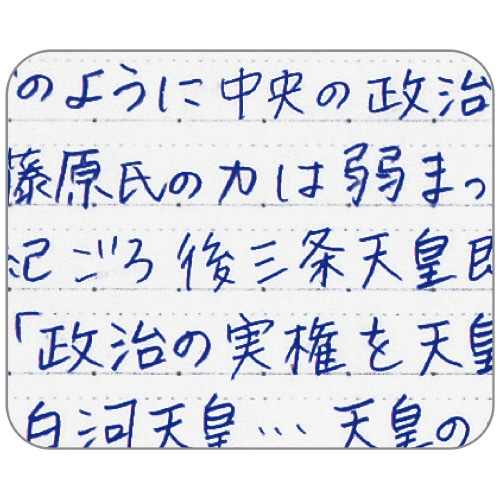 のように中央の政治
藤原氏の力は弱まっ
紀ごろ後三条天皇即
「政治の実権を天皇
白河天皇… 天皇の